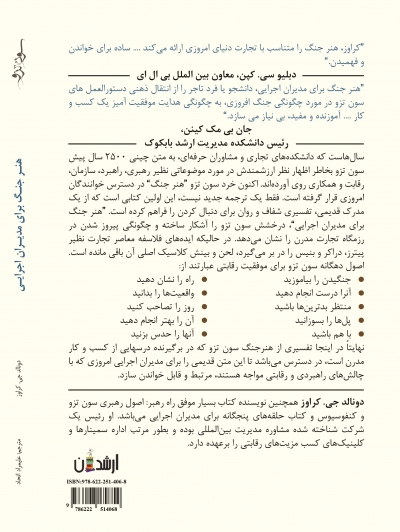 سون تزو
هنر جنگ برای مدیران اجرایی
دونالد جی. کراوز
مترجم: علیمراد اتحاد
"کراوز، هنر جنگ را متناسب با تجارت دنیای امروزی ارائه می‌کند .... ساده برای خواندن و
فهمیدن."
دبلیو سی. کپن، معاون بین الملل بی ال ای
"هنر جنگ برای مدیران اجرایی، دانشجو یا فرد تاجر را از انتقال ذهنی دستورالعمل های
سون تزو در مورد چگونگی جنگ افروزی، به چگونگی هدایت موفقیت آمیز یک کسب و
کار .... آموزنده و مفید، بی نیاز می سازد."
جان بی مک کینن،
رئیس دانشکده مدیریت ارشد بابکوک
سال‌هاست که دانشکده‌های تجاری و مشاوران حرفه‌ای، به متن چینی ۲۵۰۰ سال پیش
سون تزو بخاطر اظهار نظر ارزشمندش در مورد موضوعاتی نظیر رهبری، راهبرد، سازمان،
رقابت و همکاری روی آورده‌اند. اکنون خرد سون تزو "هنر جنگ" در دسترس خوانندگان
امروزی قرار گرفته است. فقط یک ترجمه جدید نیست، این اولین کتابی است که از یک
مدرک قدیمی، تفسیری شفاف و روان برای دنبال کردن را فراهم کرده است. "هنر جنگ
برای مدیران اجرایی"، درخشش سون تزو را آشکار ساخته و چگونگی پیروز شدن در
رزمگاه تجارت مدرن را نشان می‌دهد. در حالیکه ایده‌های فلاسفه معاصر تجارت نظیر
پیترز، دراکر و بنیس را در بر می‌گیرد، لحن و بینش کلاسیک اصلی آن باقی مانده است.
اصول دهگانه سون تزو برای موفقیت رقابتی عبارتند از:
• جنگیدن را بیاموزید • راه را نشان دهید
• آنرا درست انجام دهید • واقعیت‌ها را بدانید
• منتظر بدترین‌ها باشید • روز را تصاحب کنید
• پل‌ها را بسوزانید • آن را بهتر انجام دهید
• با هم باشید • آنها را حدس بزنید
نهایتاً در اینجا تفسیری از هنرجنگ سون تزو که در برگیرنده درسهایی از کسب و کار
مدرن است، در دسترس می‌باشد تا این متن قدیمی را برای مدیران اجرایی امروزی که با
چالش‌های راهبردی و رقابتی مواجه هستند، مرتبط و قابل خواندن سازد.
دونالد جی. کراوز همچنین نویسنده کتاب بسیار موفق راه رهبر: اصول رهبری سون تزو
و کنفوسیوس و کتاب حلقه‌های پنجگانه برای مدیران اجرایی می‌باشد. او رئیس یک
شرکت شناخته شده مشاوره مدیریت بین‌المللی بوده و بطور مرتب اداره سمینارها و
کلینیک‌های کسب مزیت‌های رقابتی را برعهده دارد.
ارشدان
ISBN: 978-622-251-406-8
9 786222 514068